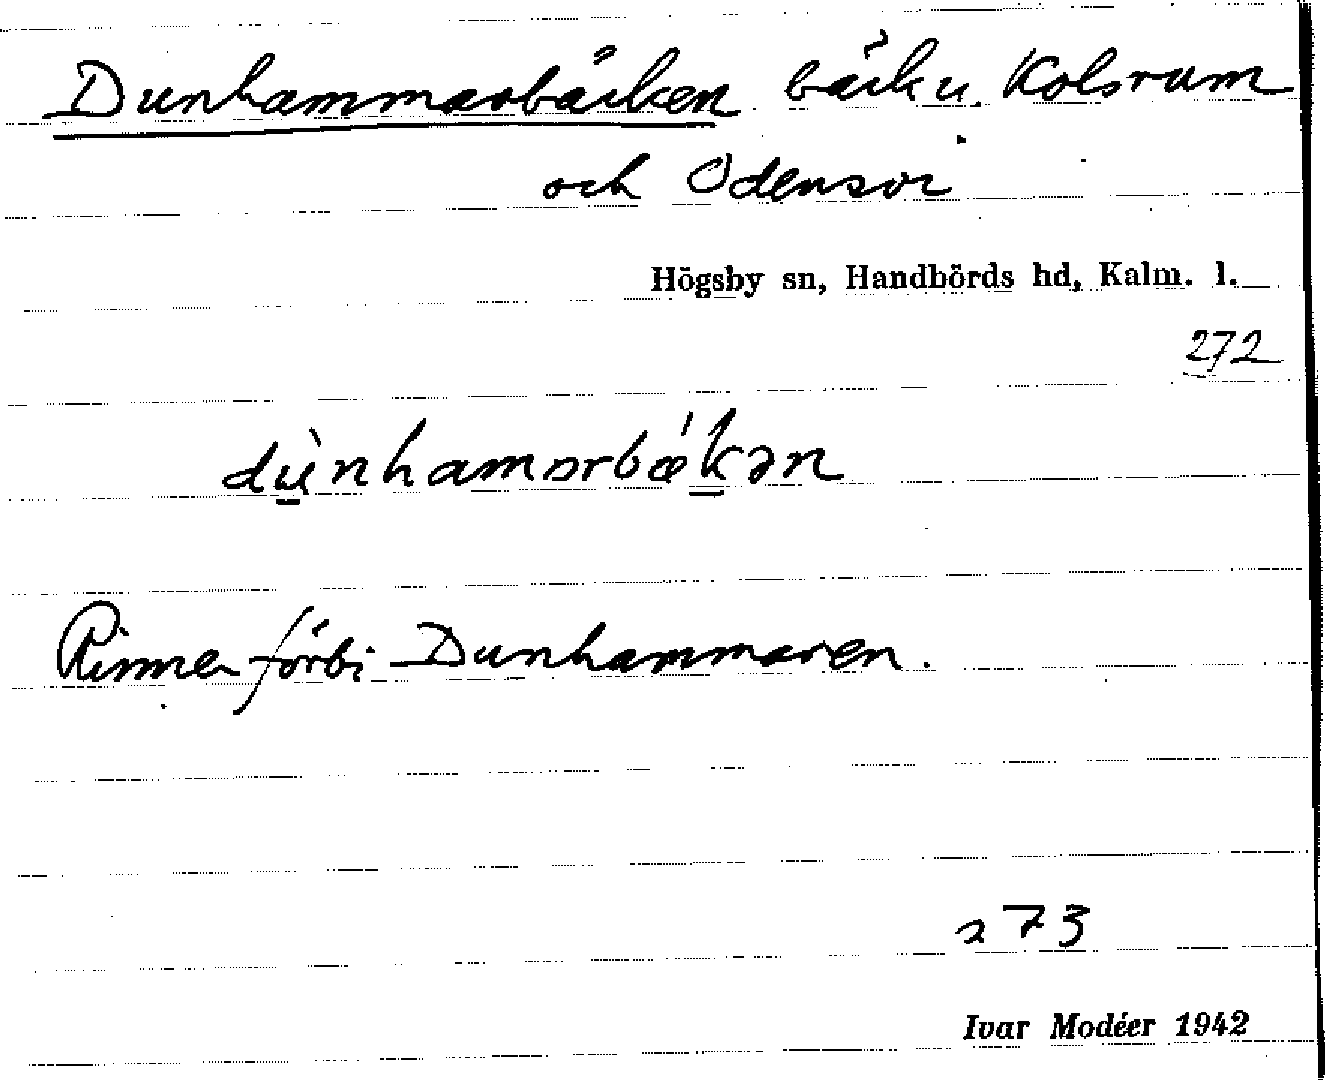 Dunhammarbäcken bäck u. Kolsrum
och Odensvi
Högsby sn, Handbörds hd, Kalm. l.
272
dùnhamarbǽkən
Rinner förbi Dunhammaren.
273
Ivar Modéer 1942